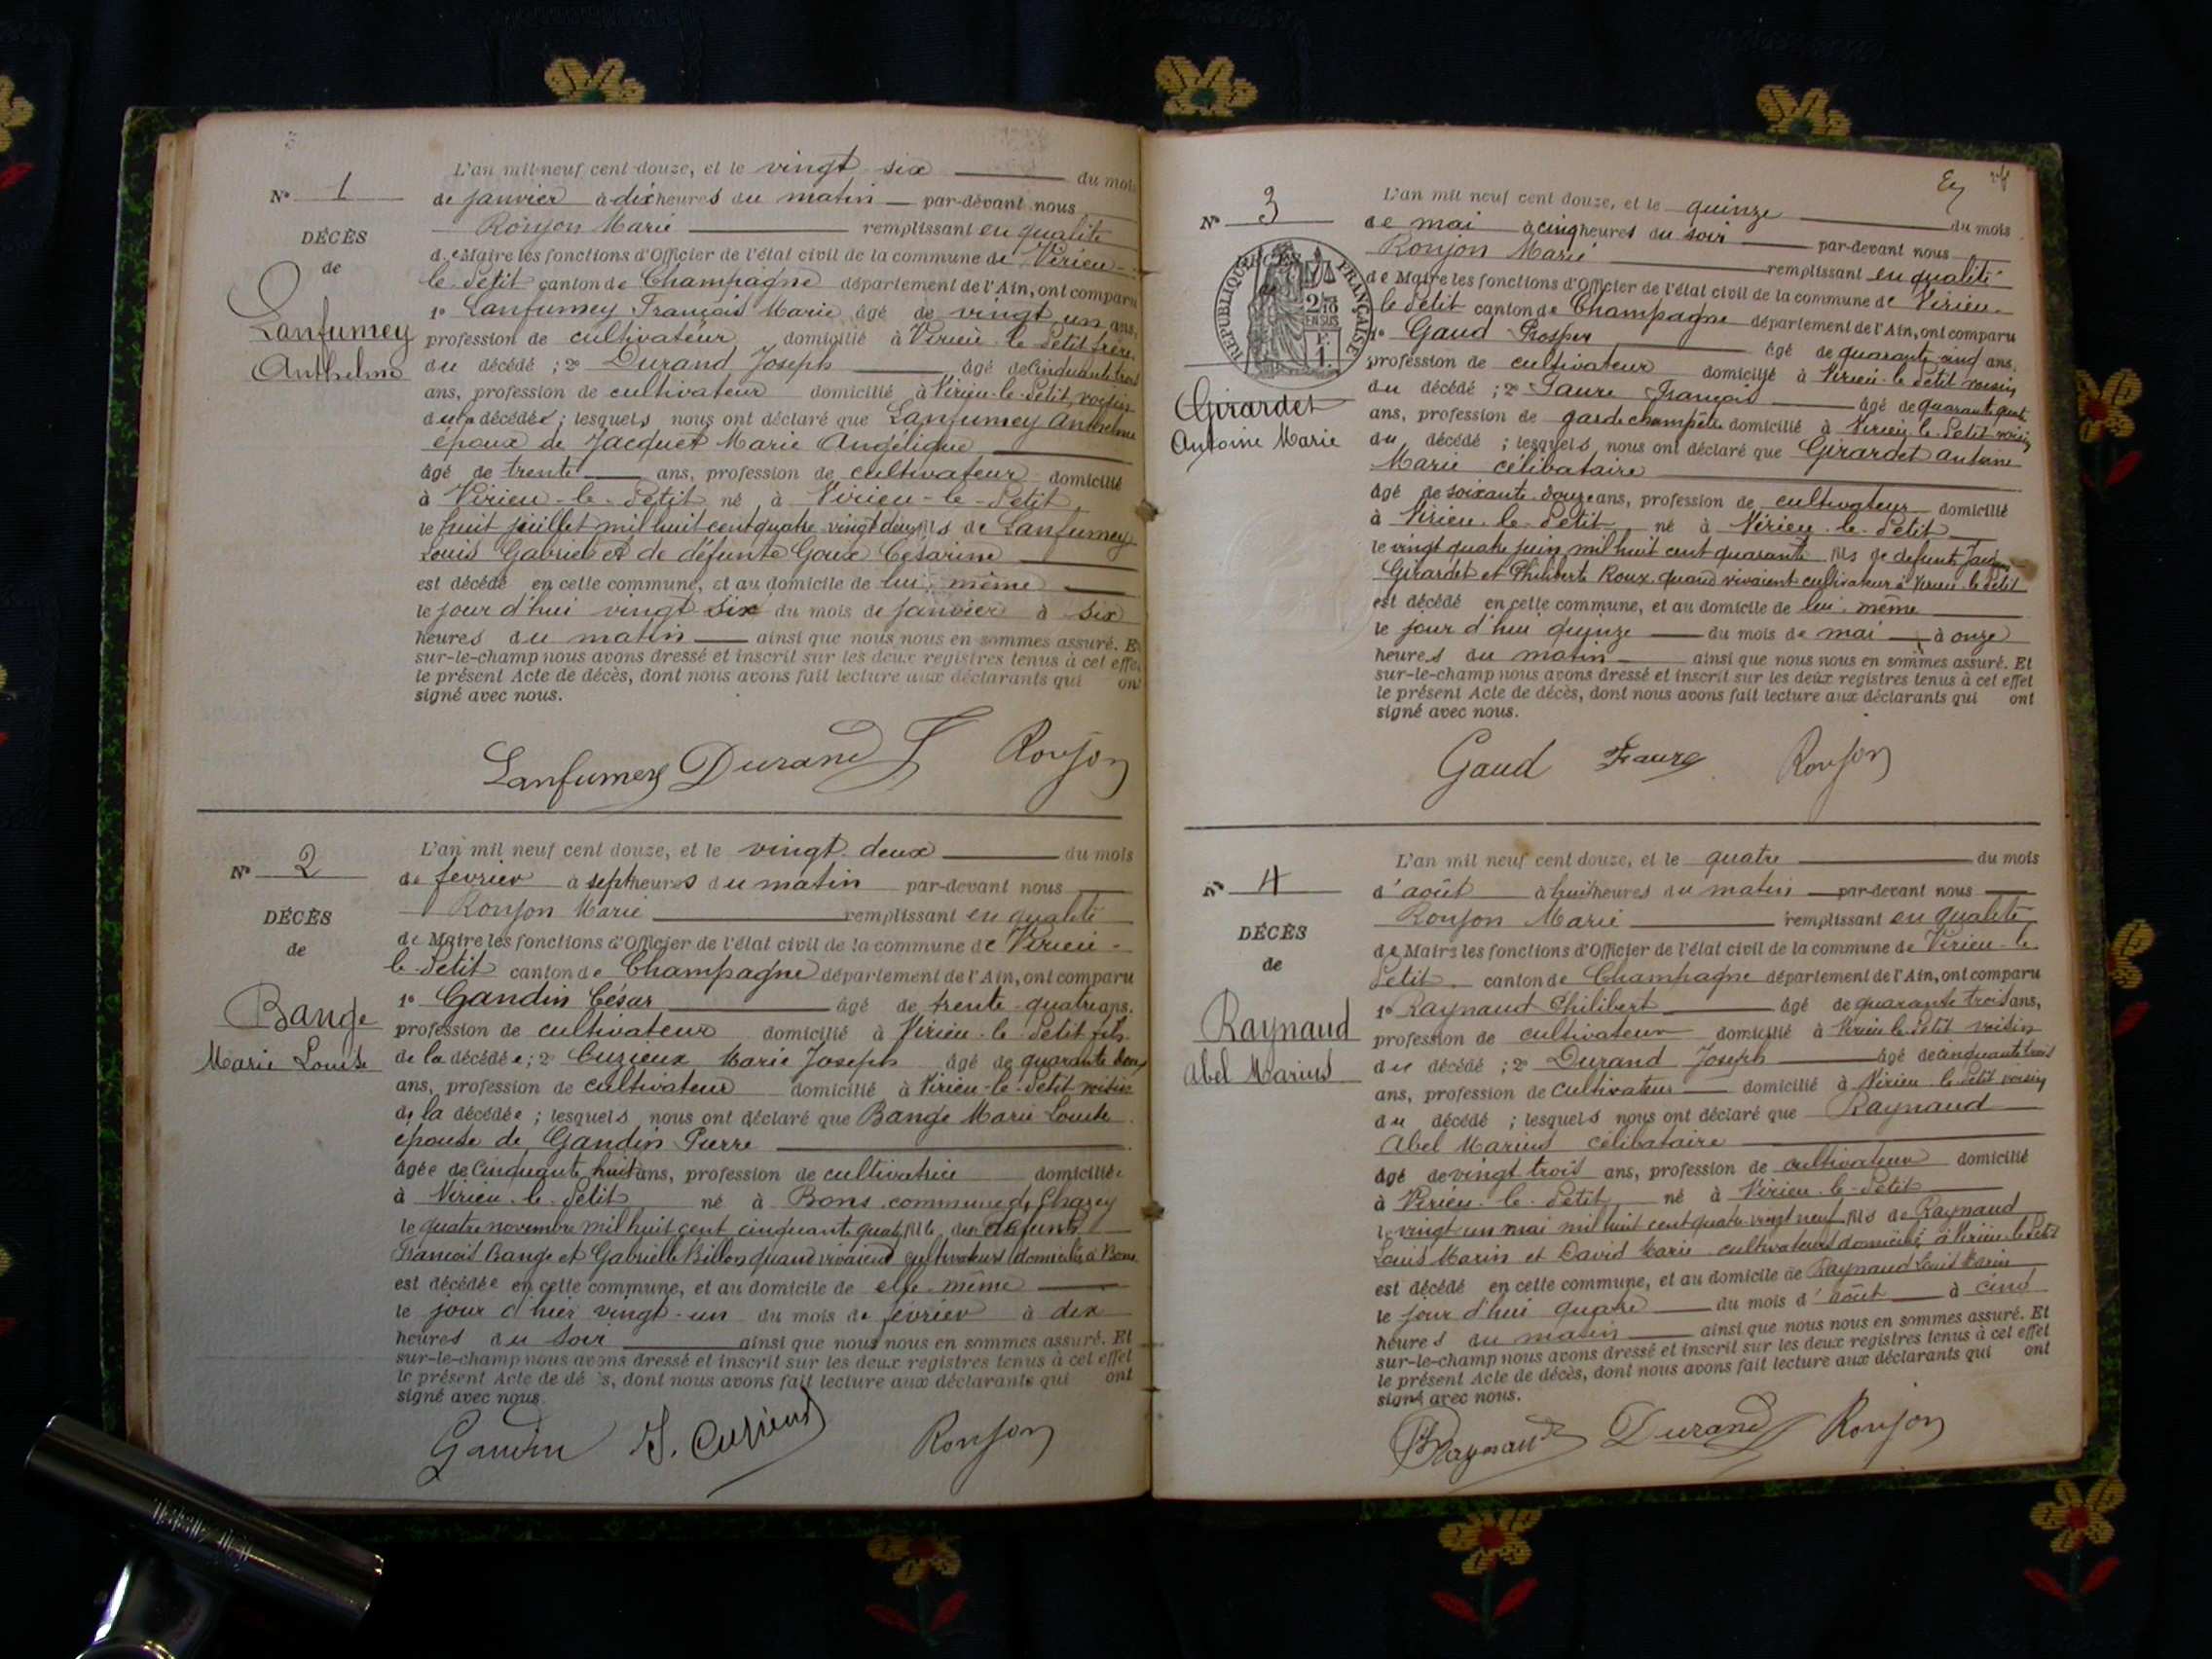 L'an mil neuf cent douze, et le vingt six du mois
N° 1
de janvier à dix heures du matin par-devant nous
Roujon Marie remplissant en qualité
DÉCÈS
de
de Maire les fonctions d'Officier de l'état civil de la commune de Virieu-
le-Petit canton de Champagne département de l'Ain, ont comparu
Lanfumey
Anthelme
1° Lanfumey François Marie âgé de vingt un ans,
profession de cultivateur domicilié à Virieu le Petit frère
du décédé ; 2° Durand Joseph âgé de cinquante trois
ans, profession de cultivateur domicilié à Virieu-le-Petit, voisin
décédé ; lesquels nous ont déclaré que Lanfumey Anthelme
époux de Jacquet Marie Angélique
âgé de trente ans, profession de cultivateur domicilié
à Virieu-le-Petit né à Virieu-le-Petit
le huit juillet mil huit cent quatre vingt fils de Lanfumey
Louis Gabriel et de défunte Goux Césarine
est décédé en cette commune, et au domicile de lui même
le jour d'hui vingt six du mois de janvier à six
heures du matin ainsi que nous nous en sommes assuré. Et
sur-le-champ nous avons dressé et inscrit sur les deux registres tenus à cet effet
le présent Acte de décès, dont nous avons fait lecture aux déclarants qui ont
signé avec nous.
Lanfumey Durand J Roujon
L'an mil neuf cent douze, et le vingt deux du mois
N° 2
de février à sept heures du matin par-devant nous
Roujon Marie remplissant en qualité
DÉCÈS
de
de Maire les fonctions d'Officier de l'état civil de la commune de Virieu-
le-Petit canton de Champagne département de l'Ain, ont comparu
Bange
Marie Louise
1° Gandin César âgé de trente quatre ans,
profession de cultivateur domicilié à Virieu-le-Petit fils
de la décédée ; 2° Cuzieux Marie Joseph âgé de quarante deux
ans, profession de cultivateur domicilié à Virieu-le-Petit voisin
de la décédée ; lesquels nous ont déclaré que Bange Marie Louise
épouse de Gandin Pierre
âgée de cinquante huit ans, profession de cultivatrice domiciliée
à Virieu-le-Petit né à Bons commune de Chazey
le quatre novembre mil huit cent cinquante quatre fille des défunts
François Bange et Gabrielle Billon quand vivaient cultivateurs domiciliés à Bons
est décédée en cette commune, et au domicile de elle même
le jour d'hier vingt-un du mois de février à dix
heures du soir ainsi que nous nous en sommes assuré. Et
sur-le-champ nous avons dressé et inscrit sur les deux registres tenus à cet effet
le présent Acte de dé s, dont nous avons fait lecture aux déclarants qui ont
signé avec nous
Gandin J. Cuzieux Roujon
L'an mil neuf cent douze, et le quinze du mois
N° 3
de mai à cinq heures du soir par-devant nous
Roujon Marie remplissant en qualité
RÉPUBLIQUE FRANÇAISE
de Maire les fonctions d'Officier de l'état civil de la commune de Virieu-
le Petit canton de Champagne département de l'Ain, ont comparu
Girardet
Antoine Marie
1° Gaud Prosper âgé de quarante cinq ans,
profession de cultivateur domicilié à Virieu-le-Petit voisin
du décédé ; 2° Faure François âgé de quarante
ans, profession de garde champêtre domicilié à Virieu le Petit voisin
du décédé ; lesquels nous ont déclaré que Girardet Antoine
Marie célibataire
âgé de soixante-douze ans, profession de cultivateur domicilié
à Virieu-le-Petit né à Virieu-le-Petit
le vingt quatre juin mil huit cent quarante fils de défunts
Girardet et Philiberte Roux quand vivaient cultivateurs à Virieu le Petit
est décédé en cette commune, et au domicile de lui même
le jour d'hui quinze du mois de mai à onze
heures du matin ainsi que nous nous en sommes assuré. Et
sur-le-champ nous avons dressé et inscrit sur les deux registres tenus à cet effet
le présent Acte de décès, dont nous avons fait lecture aux déclarants qui ont
signé avec nous.
Gaud Faure Roujon
L'an mil neuf cent douze, et le quatre du mois
N° 4
d'août à huit heures du matin par-devant nous
Roujon Marie remplissant en qualité
DÉCÈS
de
de Maire les fonctions d'Officier de l'état civil de la commune de Virieu-le
Petit canton de Champagne département de l'Ain, ont comparu
Raynaud
Abel Marius
1° Raynaud Philibert âgé de quarante trois ans,
profession de cultivateur domicilié à Virieu le Petit voisin
du décédé ; 2° Durand Joseph âgé de cinquante trois
ans, profession de cultivateur domicilié à Virieu-le-Petit voisin
du décédé ; lesquels nous ont déclaré que Raynaud
Abel Marius célibataire
âgé de vingt trois ans, profession de cultivateur domicilié
à Virieu-le-Petit né à Virieu-le-Petit
le vingt un mai mil huit cent quatre-vingt neuf fils de Raynaud
Louis Marin et David Marie cultivateurs domiciliés à Virieu le Petit
est décédé en cette commune, et au domicile de Raynaud Louis Marin
le jour d'hui quatre du mois d'août à cinq
heures du matin ainsi que nous nous en sommes assuré. Et
sur-le-champ nous avons dressé et inscrit sur les deux registres tenus à cet effet
le présent Acte de décès, dont nous avons fait lecture aux déclarants qui ont
signé avec nous.
Raynaud Durand Roujon